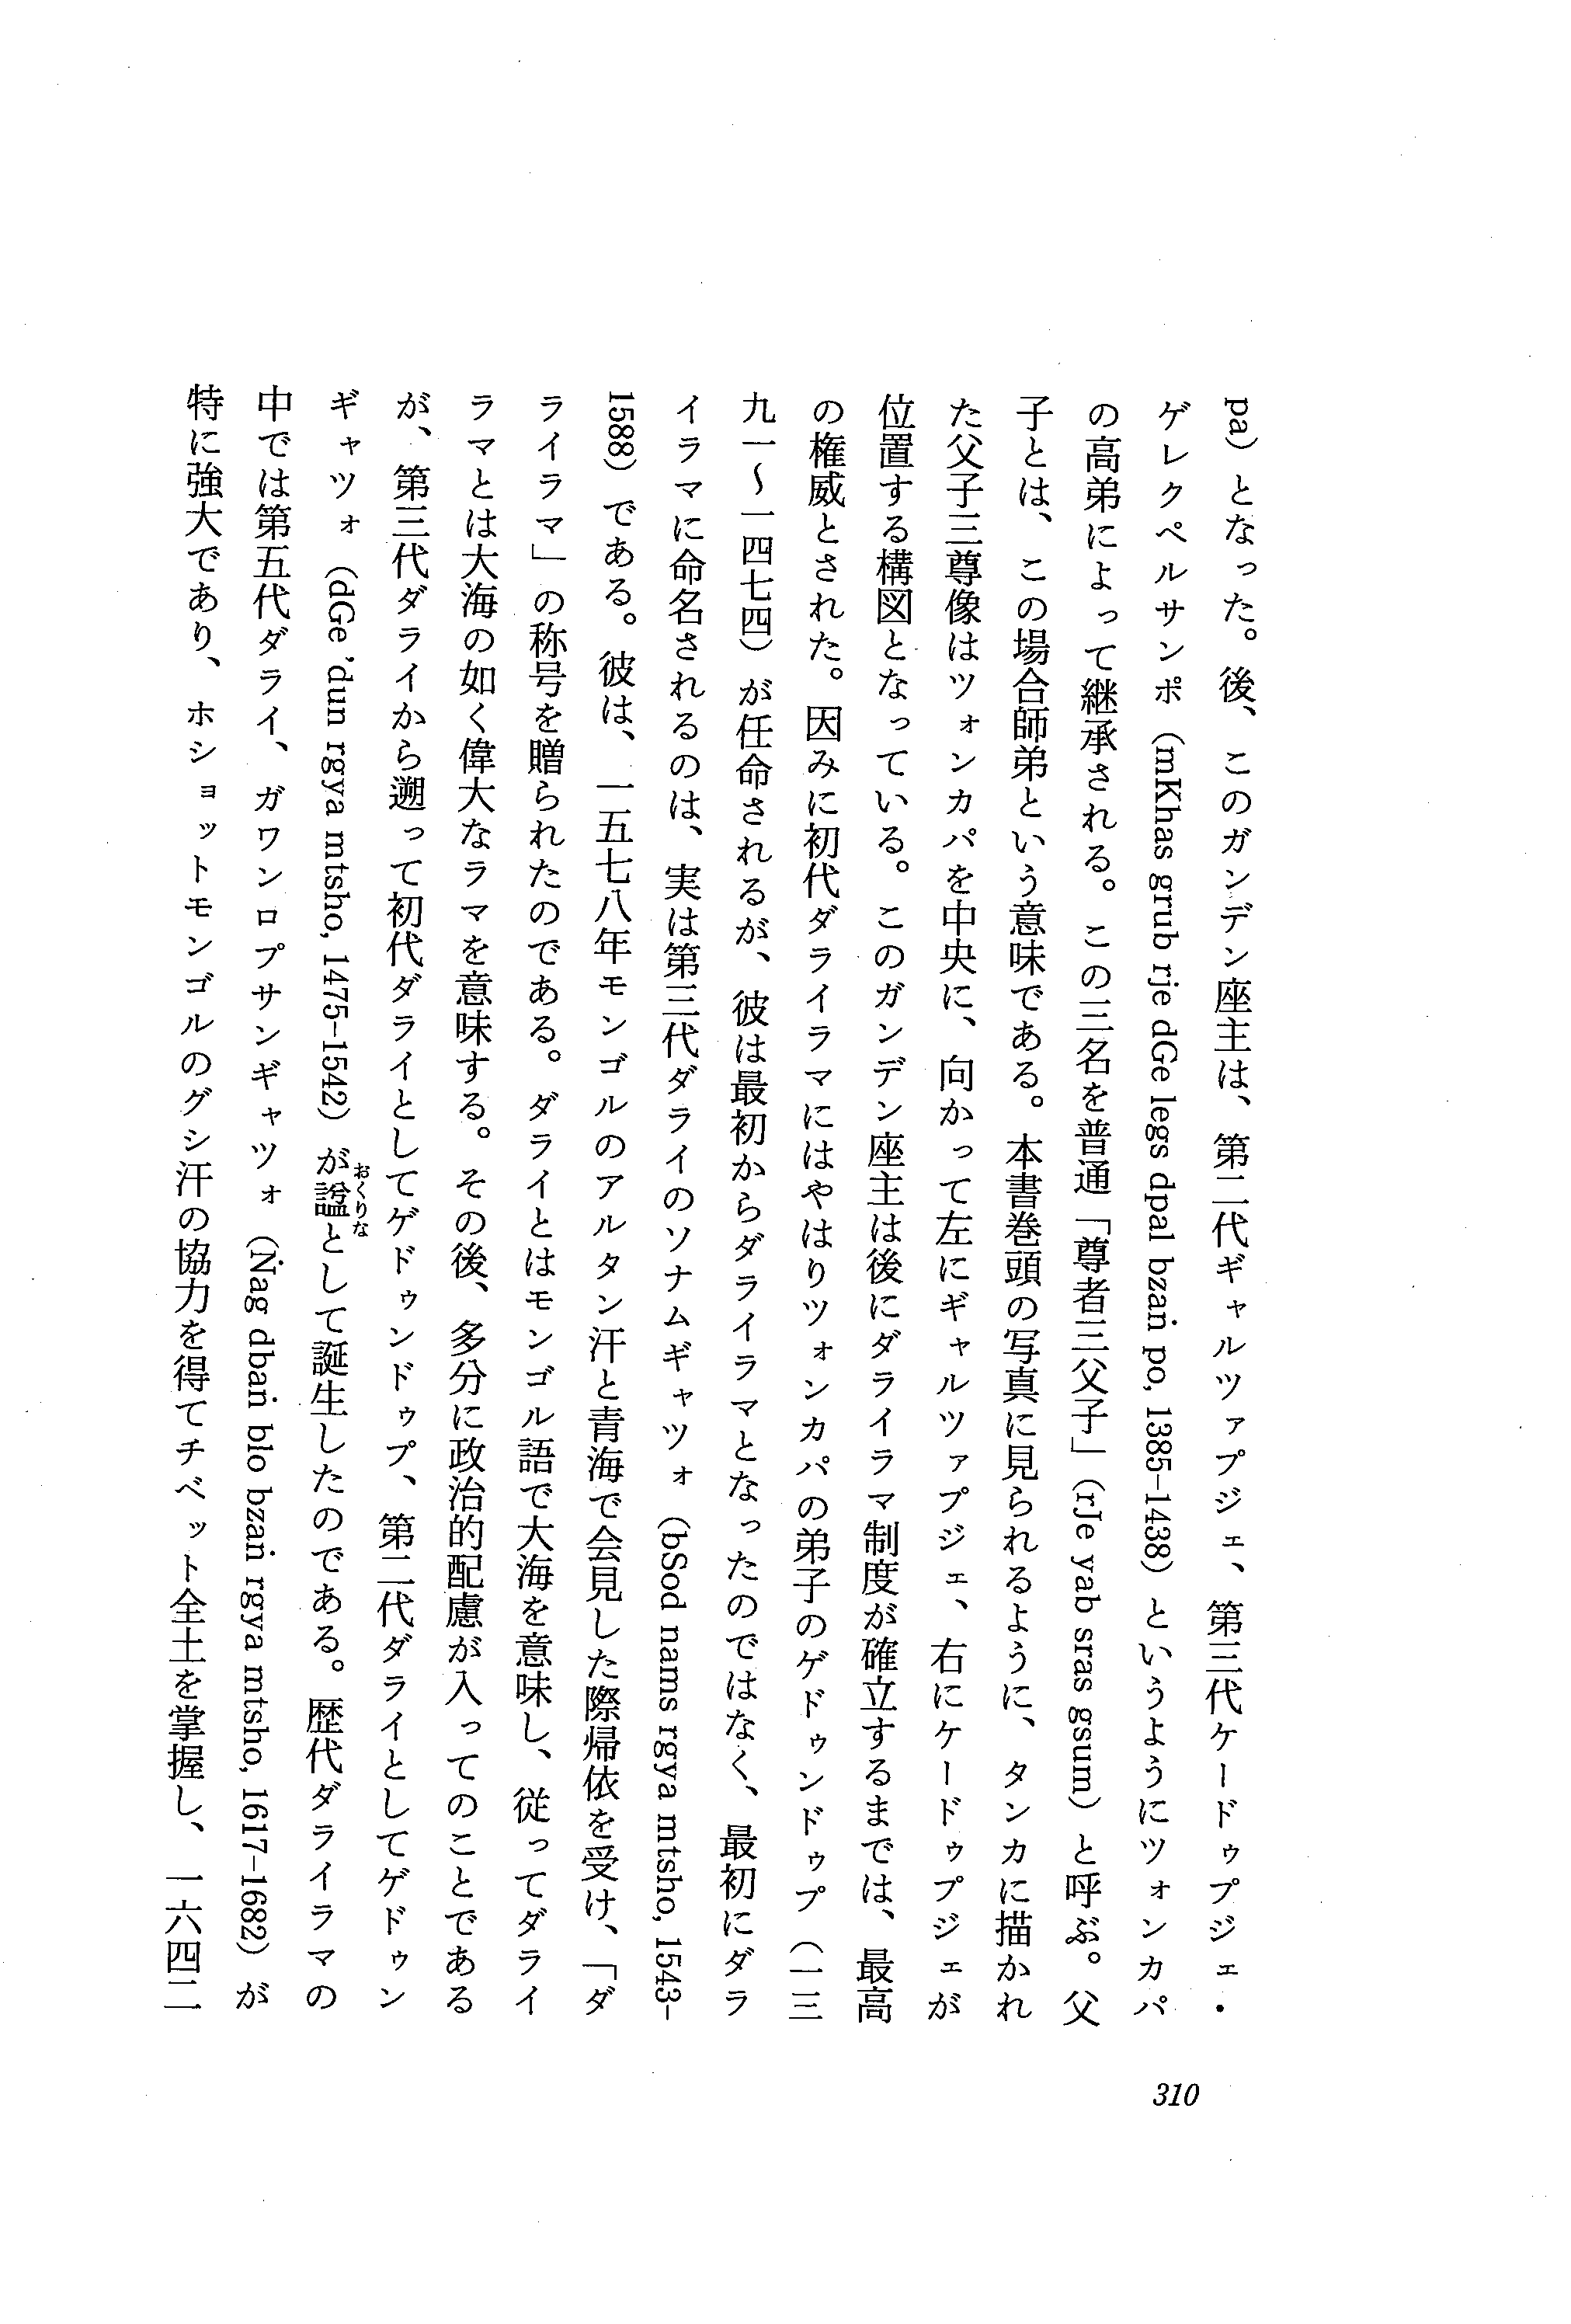 pa）となった。後、このガンデン座主は、第二代ギャルツァプジェ、第三代ケードゥプジェ・
ゲレクペルサンポ（mKhas grub rje dGe legs dpal bzaṅ po, 1385-1438）というようにツォンカパ
の高弟によって継承される。この三名を普通「尊者三父子」（rJe yab sras gsum）と呼ぶ。父
子とは、この場合師弟という意味である。本書巻頭の写真に見られるように、タンカに描かれ
た父子三尊像はツォンカパを中央に、向かって左にギャルツァプジェ、右にケードゥプジェが
位置する構図となっている。このガンデン座主は後にダライラマ制度が確立するまでは、最高
の権威とされた。因みに初代ダライラマにはやはりツォンカパの弟子のゲドゥンドゥプ（一三
九一〜一四七四）が任命されるが、彼は最初からダライラマとなったのではなく、最初にダラ
イラマに命名されるのは、実は第三代ダライのソナムギャツォ（bSod nams rgya mtsho, 1543-
1588）である。彼は、一五七八年モンゴルのアルタン汗と青海で会見した際帰依を受け、「ダ
ライラマ」の称号を贈られたのである。ダライとはモンゴル語で大海を意味し、従ってダライ
ラマとは大海の如く偉大なラマを意味する。その後、多分に政治的配慮が入ってのことである
が、第三代ダライから遡って初代ダライとしてゲドゥンドゥプ、第二代ダライとしてゲドゥン
ギャツォ（dGe 'dun rgya mtsho, 1475-1542）が諡おくりなとして誕生したのである。歴代ダライラマの
中では第五代ダライ、ガワンロプサンギャツォ（Ṅag dbaṅ blo bzaṅ rgya mtsho, 1617-1682）が
特に強大であり、ホショットモンゴルのグシ汗の協力を得てチベット全土を掌握し、一六四二
310